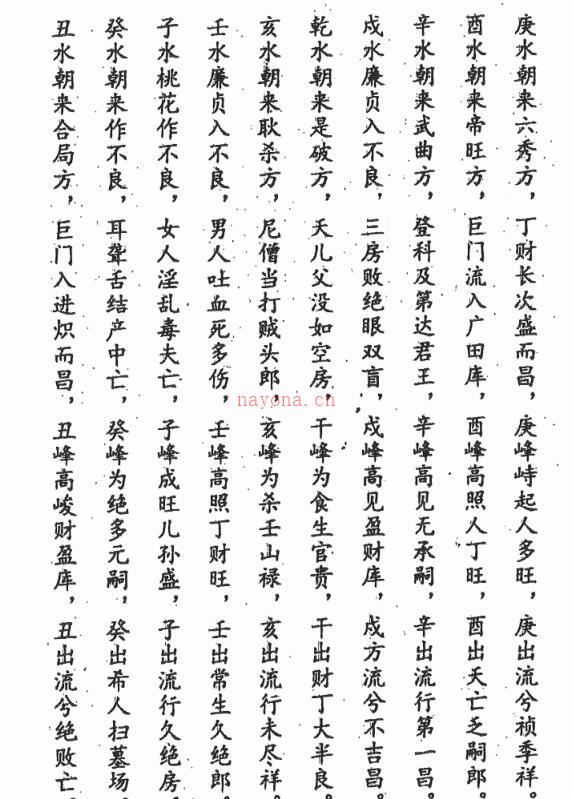 庚水朝来六秀方，丁财长次盛而昌，庚峰峙起人多旺，庚出流兮祯季祥。
酉水朝来帝旺方，巨门流入广田库，酉峰高照人丁旺，酉出夭亡乏嗣郎。
辛水朝来武曲方，登科及第达君王，辛峰高见无承嗣，辛出流行第一昌。
戌水廉贞入不良，三房败绝眼双盲，戌峰高见盈财库，戌方流兮不吉昌。
乾水朝来是破方，夭儿父没如空房，干峰为食生官贵，干出财丁大半良。
亥水朝来耿杀方，尼僧当打贼头郎，亥峰为杀壬山禄，亥出流行未尽祥。
壬水廉贞入不良，男人吐血死多伤，壬峰高照丁财旺，壬出常生久绝郎。
子水桃花作不良，女人淫乱毒夫亡，子峰成旺儿孙盛，子出流行久绝房。
癸水朝来作不良，耳聋舌结产中亡，癸峰为绝多元嗣，癸出希人扫墓场。
丑水朝来合局方，巨门入进炽而昌，丑峰高峻财盈库，丑出流兮绝败亡。
nayona.cn